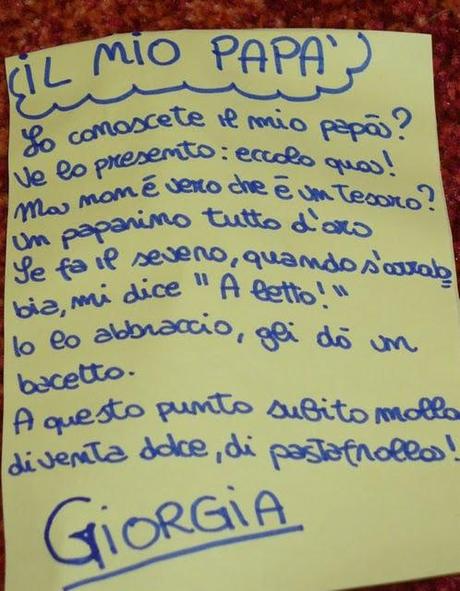 IL MIO PAPA'
Lo conoscete il mio papà?
Ve lo presento: eccolo qua!
Ma non é vero che é un tesoro?
Un paparino tutto d'oro
Se fa il severo, quando s'arrab
bia, mi dice "A letto!"
Io lo abbraccio, gli dó un
bacetto.
A questo punto subito molla
diventa dolce, di pastafrolla!
GIORGIA